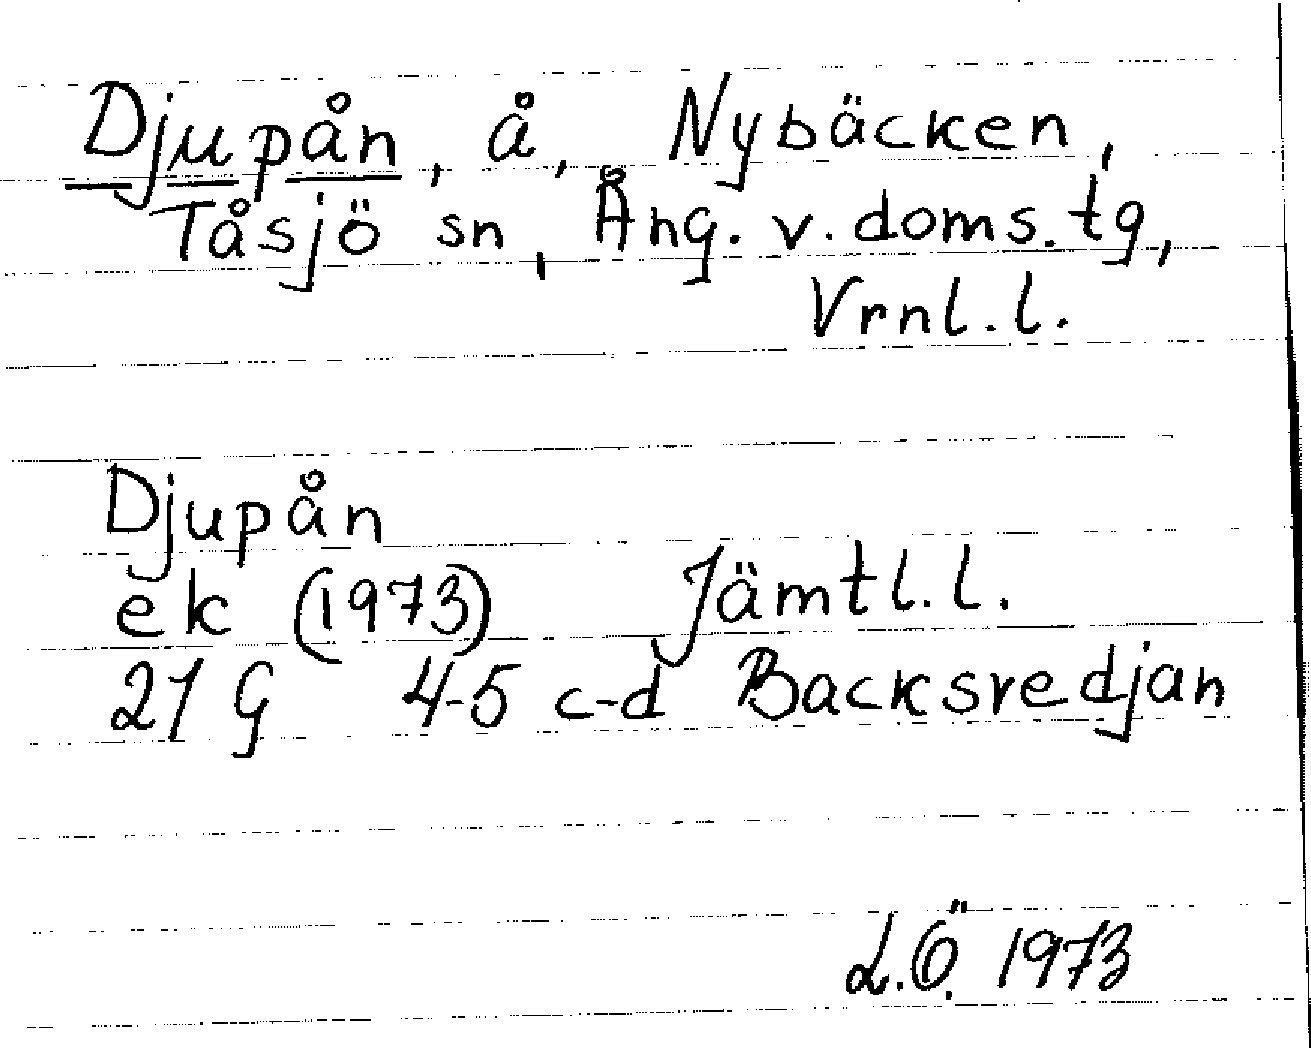 Djupån, å, Nybäcken,
Tåsjö sn, Ång. v. doms. tg,
Vrnl. l.
Djupån
ek (1973) Jämtl. l.
21 G 4-5 c-d Backsvedjan
L.Ö. 1973